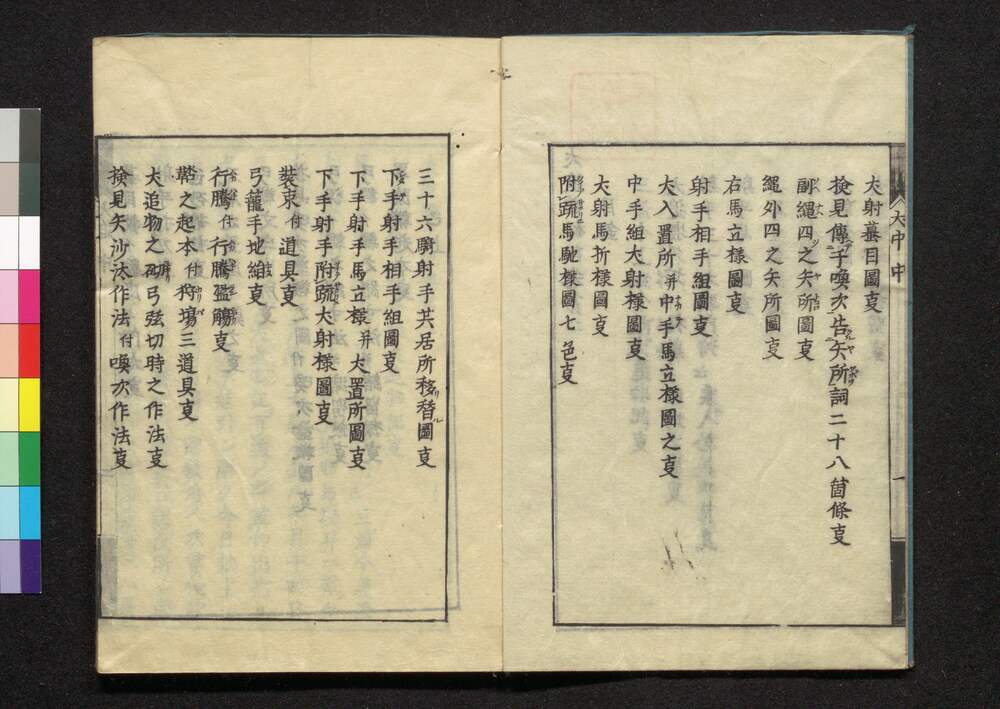 犬射蟇目圖㕝
撿見傳于喚次告矢所詞二十八箇條㕝
副繩四之矢所圖㕝
繩外四之矢所圖㕝
右馬立樣圖㕝
射手相手組圖㕝
犬入置所并中手馬立樣圖之㕝
中手組犬射樣圖㕝
犬射馬折樣圖㕝
附䟽馬馳樣圖七邑㕝
犬中中
一
三十六騎射手其居所移替圖㕝
下手射手相手組圖㕝
下手射手馬立樣并犬置所圖㕝
下手射手附䟽犬射樣圖㕝
裝束付道具㕝
弓籠手地組㕝
行騰付行騰盃觴㕝
鞢之起本付狩場三道具㕝
犬追物之砌弓弦切時之作法㕝
撿見矢沙汰作法付喚次作法㕝